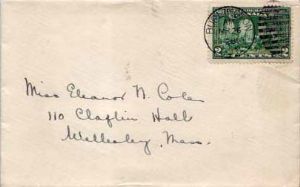 2 2
Miss Eleanor N. Coles
110 Claflin Hall
Wellesley, Mass.